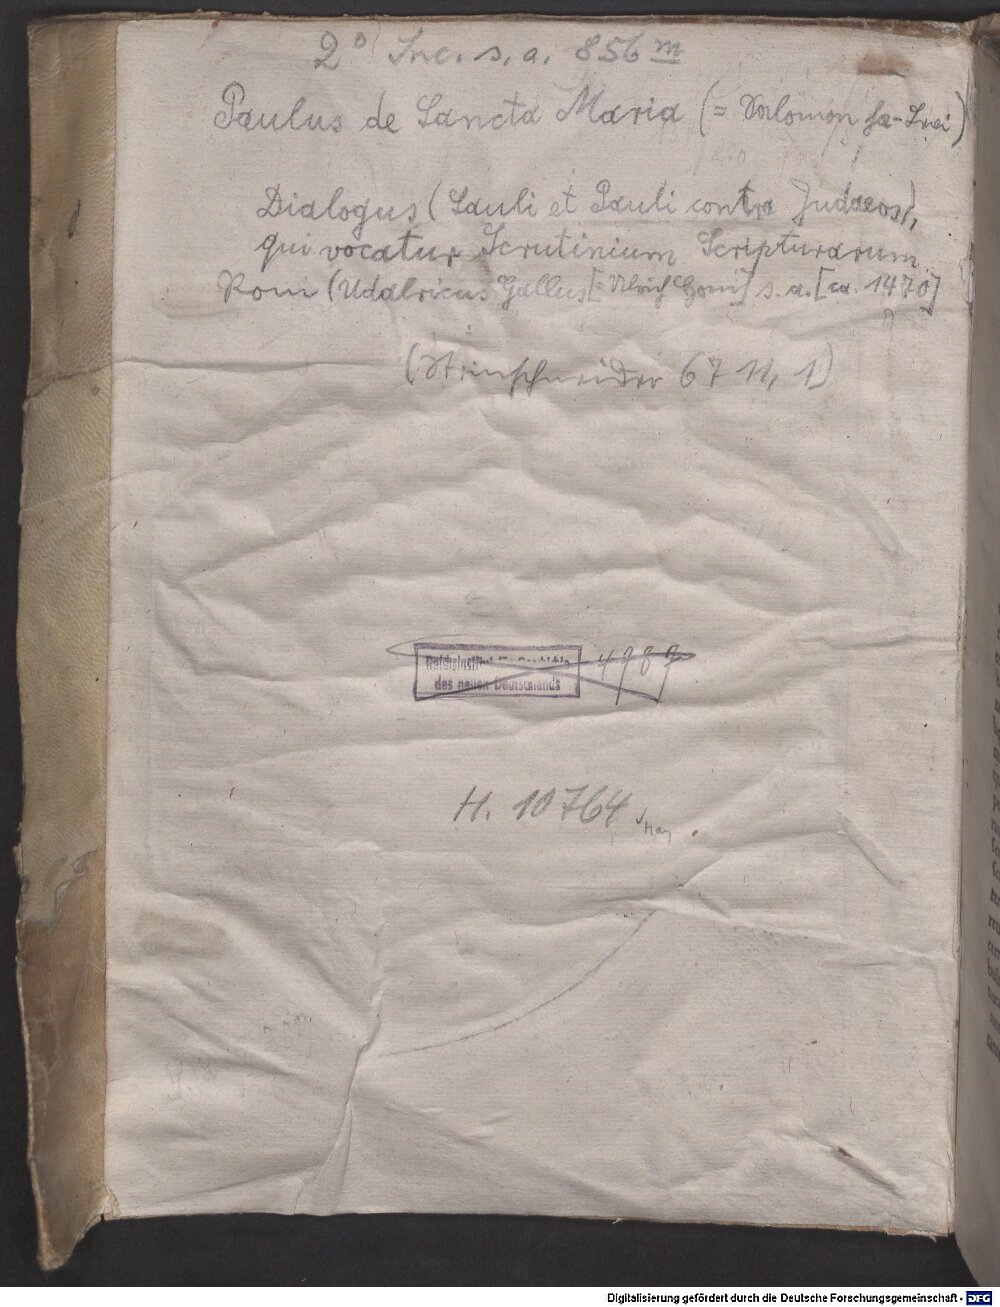 2° Inc. s. a. 856 m
Paulus de Sancta Maria (= Salomon ha-Levi)
Dialogus (Sauli et Pauli contra Judaeos),
qui vocatur Scrutinium Scripturarum.
Rom (Udalricus Gallus [= Ulrich Han] s. a. [ca. 1470]
(Steinschneider 67 11, 1)
des neuen Deutschlands
4987
H. 10764
Digitalisierung gefördert durch die Deutsche Forschungsgemeinschaft - DFG